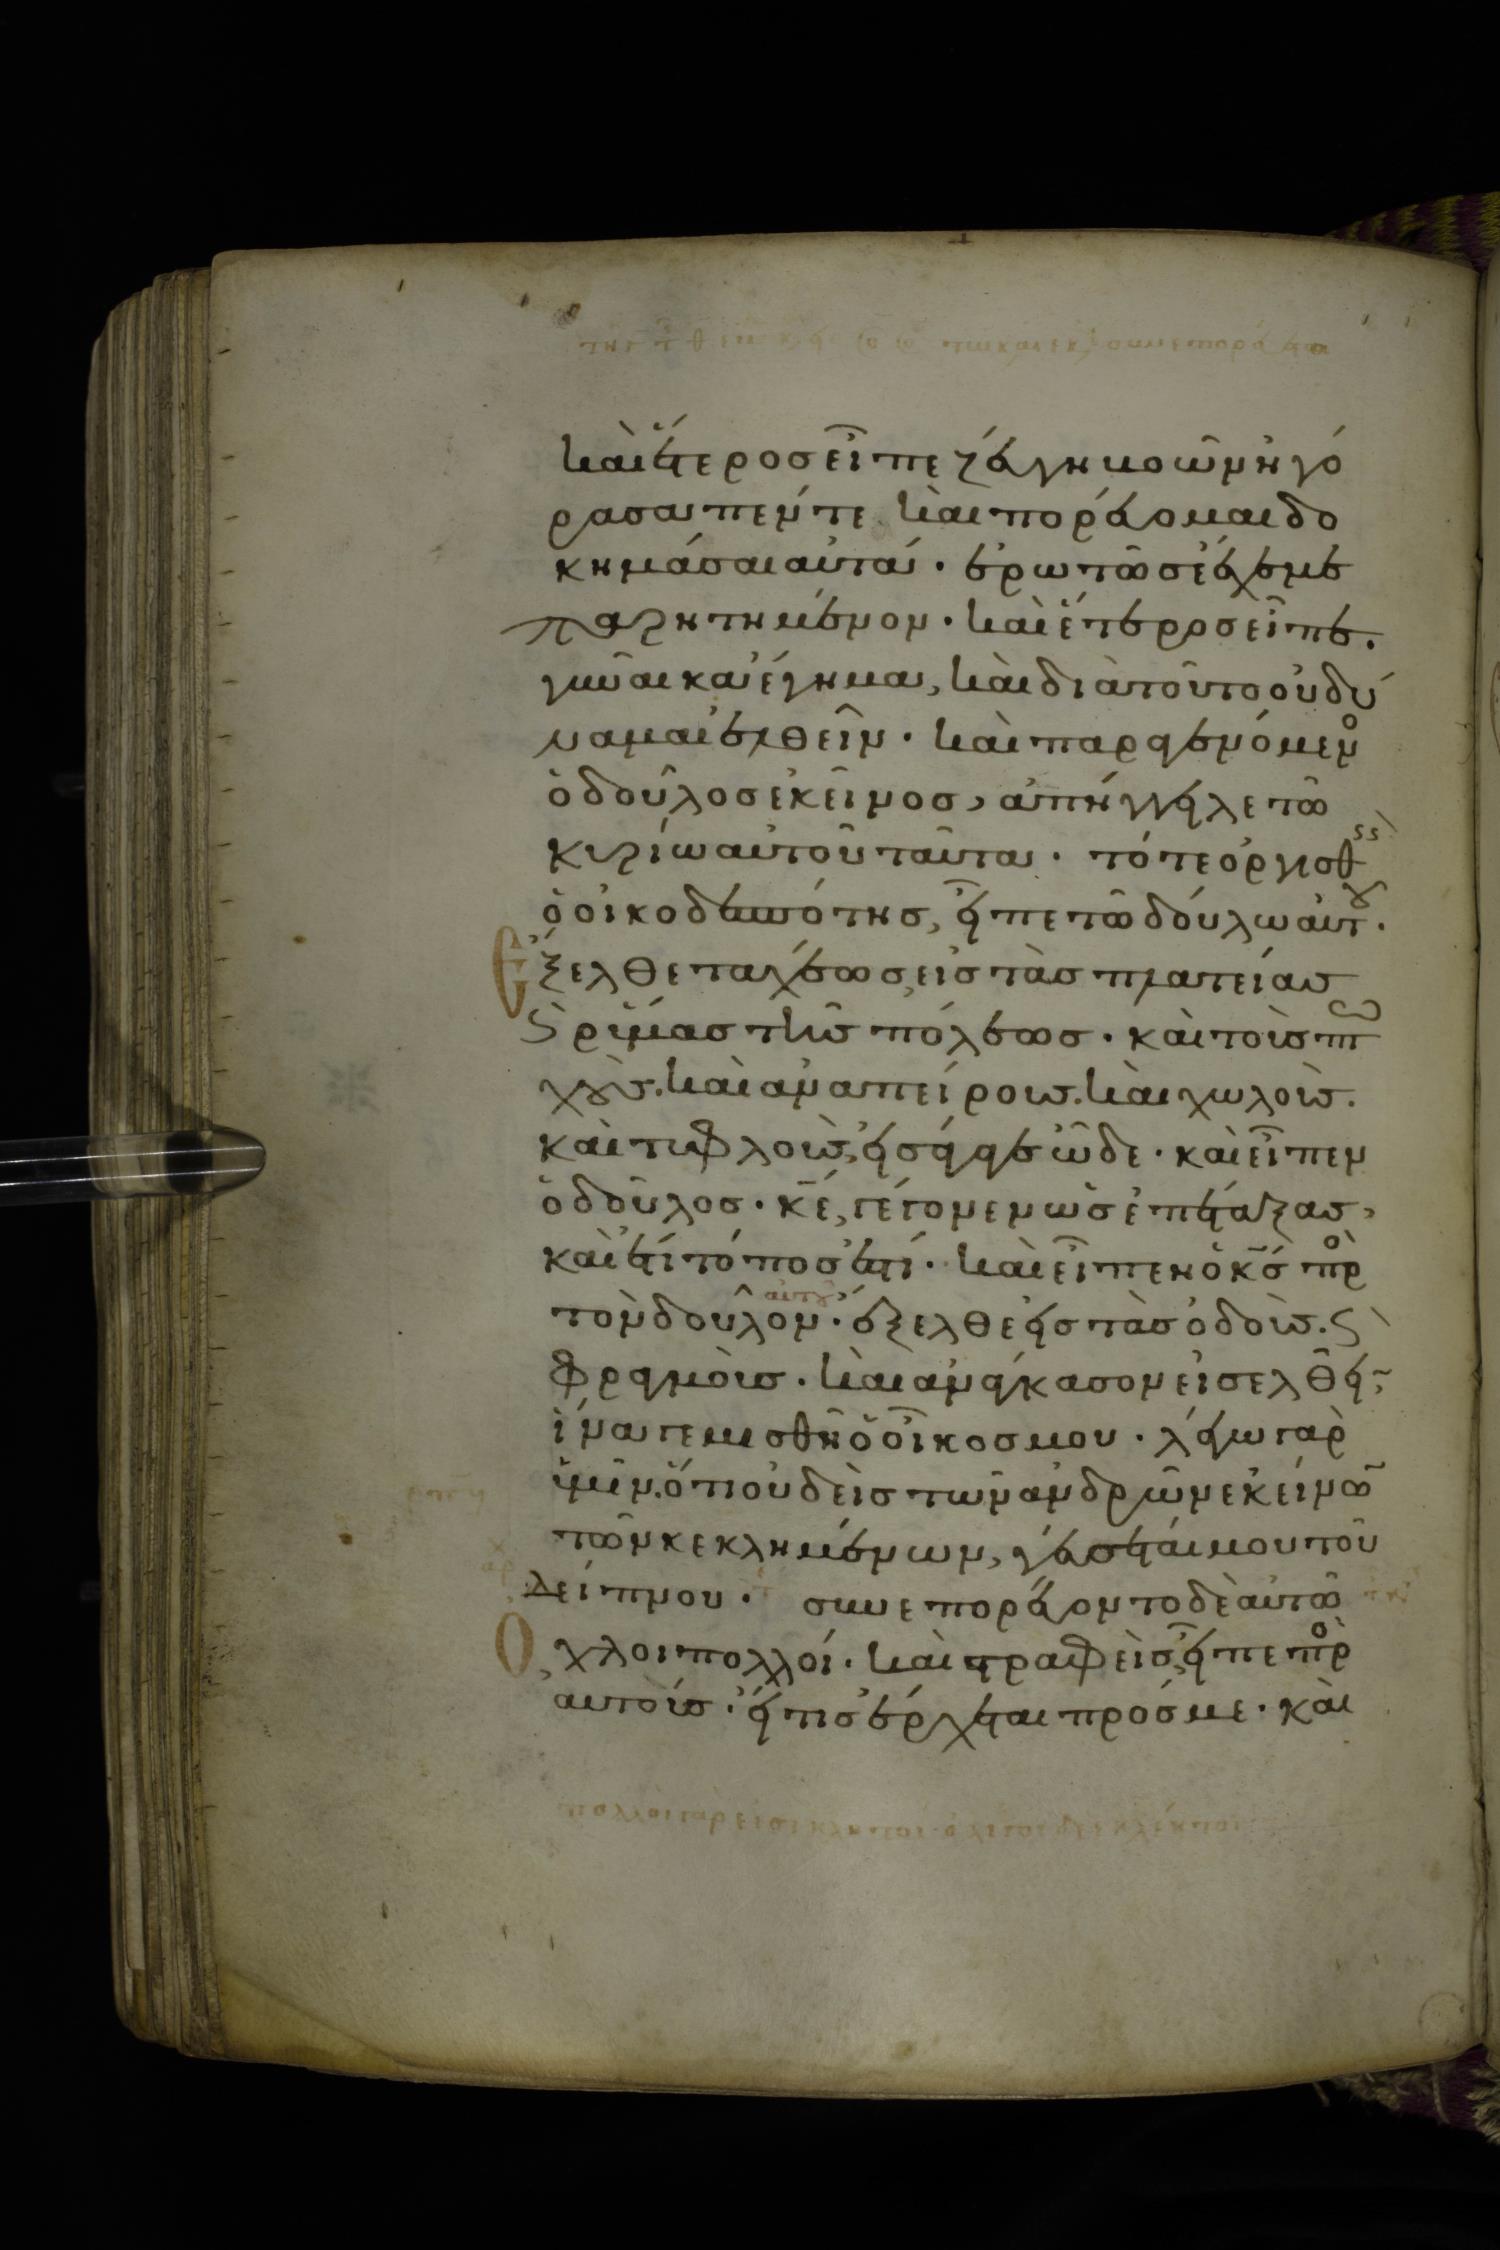 καὶ ἕτερος εἶπε ζεύγη βοῶν ἠγό
ρασα πέντε καὶ πορεύομαι δο
κημάσαι αὐτά· ἐρωτῶ σε ἔχε με
παρητημένον· καὶ ἕτερος εἶπε.
γυναῖκα ἔγημα, καὶ διὰ τοῦτο οὐ δύ
ναμαι ἐλθεῖν· καὶ παραγενόμενο
ὁ δοῦλος ἐκεῖνος, ἀπήγγειλε τῶ
κυρίω αὐτοῦ ταῦτα· τότε ὀργισθεὶς
ὁ οἰκοδεσπότης, εἶπε τῶ δούλω αὐτοῦ·
Ἔξελθε ταχέως, εἰς τὰς πλατείας
ϛ̀ ῥύμας τῆς πόλεως· καὶ τοὺς πτω
χοὺς. καὶ ἀναπείρους. καὶ χωλοὺς.
καὶ τυφλοὺς, εἰσάγαγε ὧδε· καὶ εἶπεν
ὁ δοῦλος· κε̄, γέγονεν ὡς ἐπέταξας,
καὶ ἔτι τόπος ἐστί· καὶ εἶπεν ὁ κς̄ πρὸ
τὸν δοῦλον αὐτοῦ· ἔξελθε εἰς τὰς ὁδοὺς. ϛ̀
φραγμοὺς· καὶ ἀνάγκασον εἰσελθεῖ̄,
ἵνα γεμισθῆ ὁ οἶκος μου· λέγω γὰρ
ὑμῖν. ὅτι οὐδεὶς τῶν ἀνδρῶν ἐκείνω̄
τῶν κεκλημένων, γεύσεται μου τοῦ
δείπνου· συνεπορεύοντο δὲ αὐτῶ
Ὄχλοι πολλοί· καὶ στραφεὶς, εἶπε πρὸ
αὐτούς· εἴ τις ἔρχεται πρός με· καὶ
πολλοι γαρ εισι κλητοι· ολιγοι δε εκλεκτοι